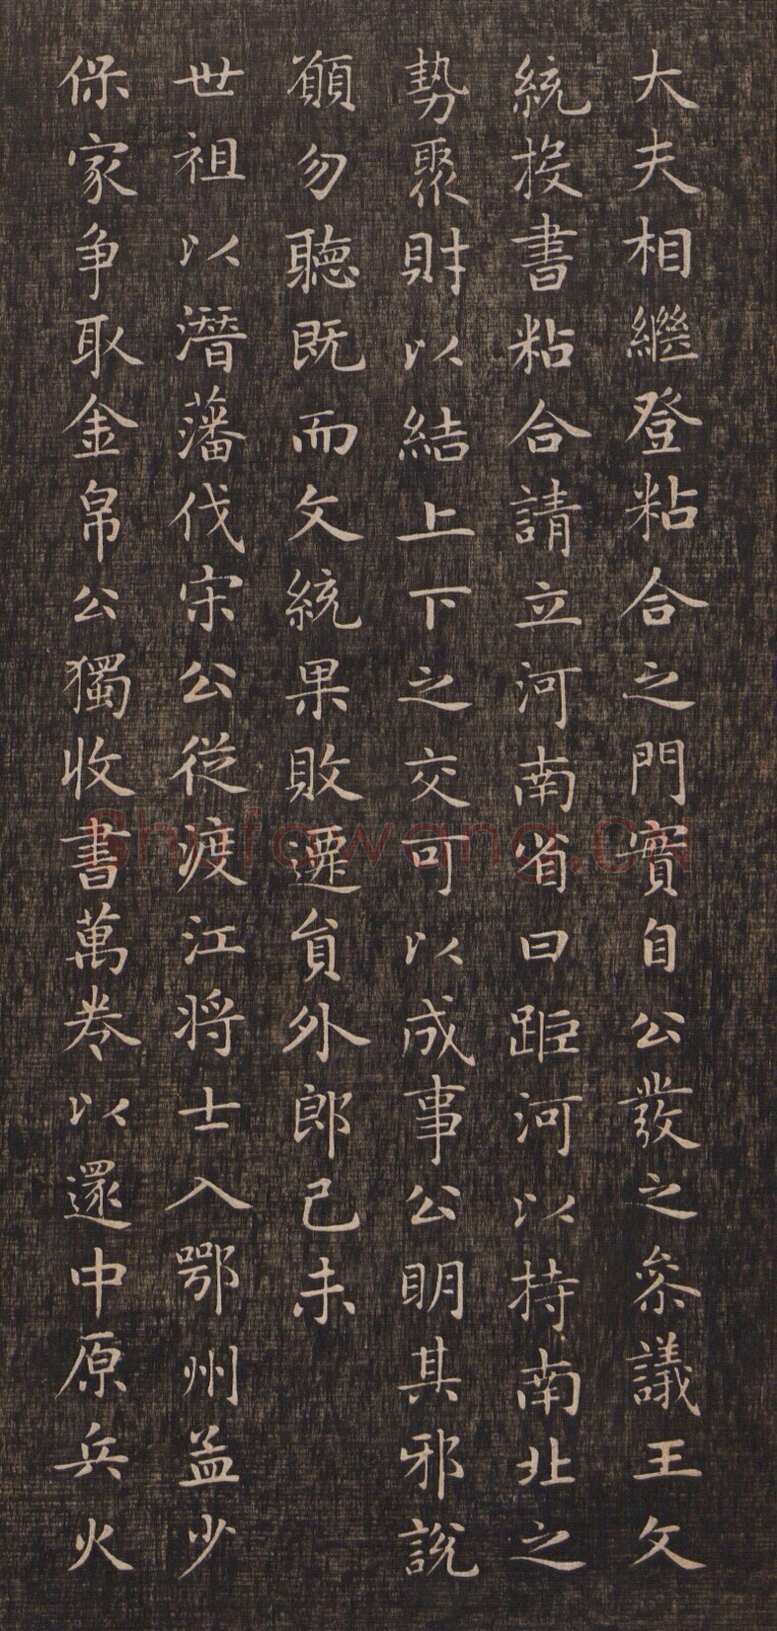 大夫相繼登粘合之門實自公發之叅議王文
統投書粘合請立河南省曰距河以持南北之
勢聚財以結上下之交可以成事公明其邪說
願勿聽既而文統果敗遷貟外郎己未
世祖以潛藩伐宋公從渡江將士入鄂州益少
保家争取金帛公獨收書萬卷以還中原兵火
Shufawang.cn